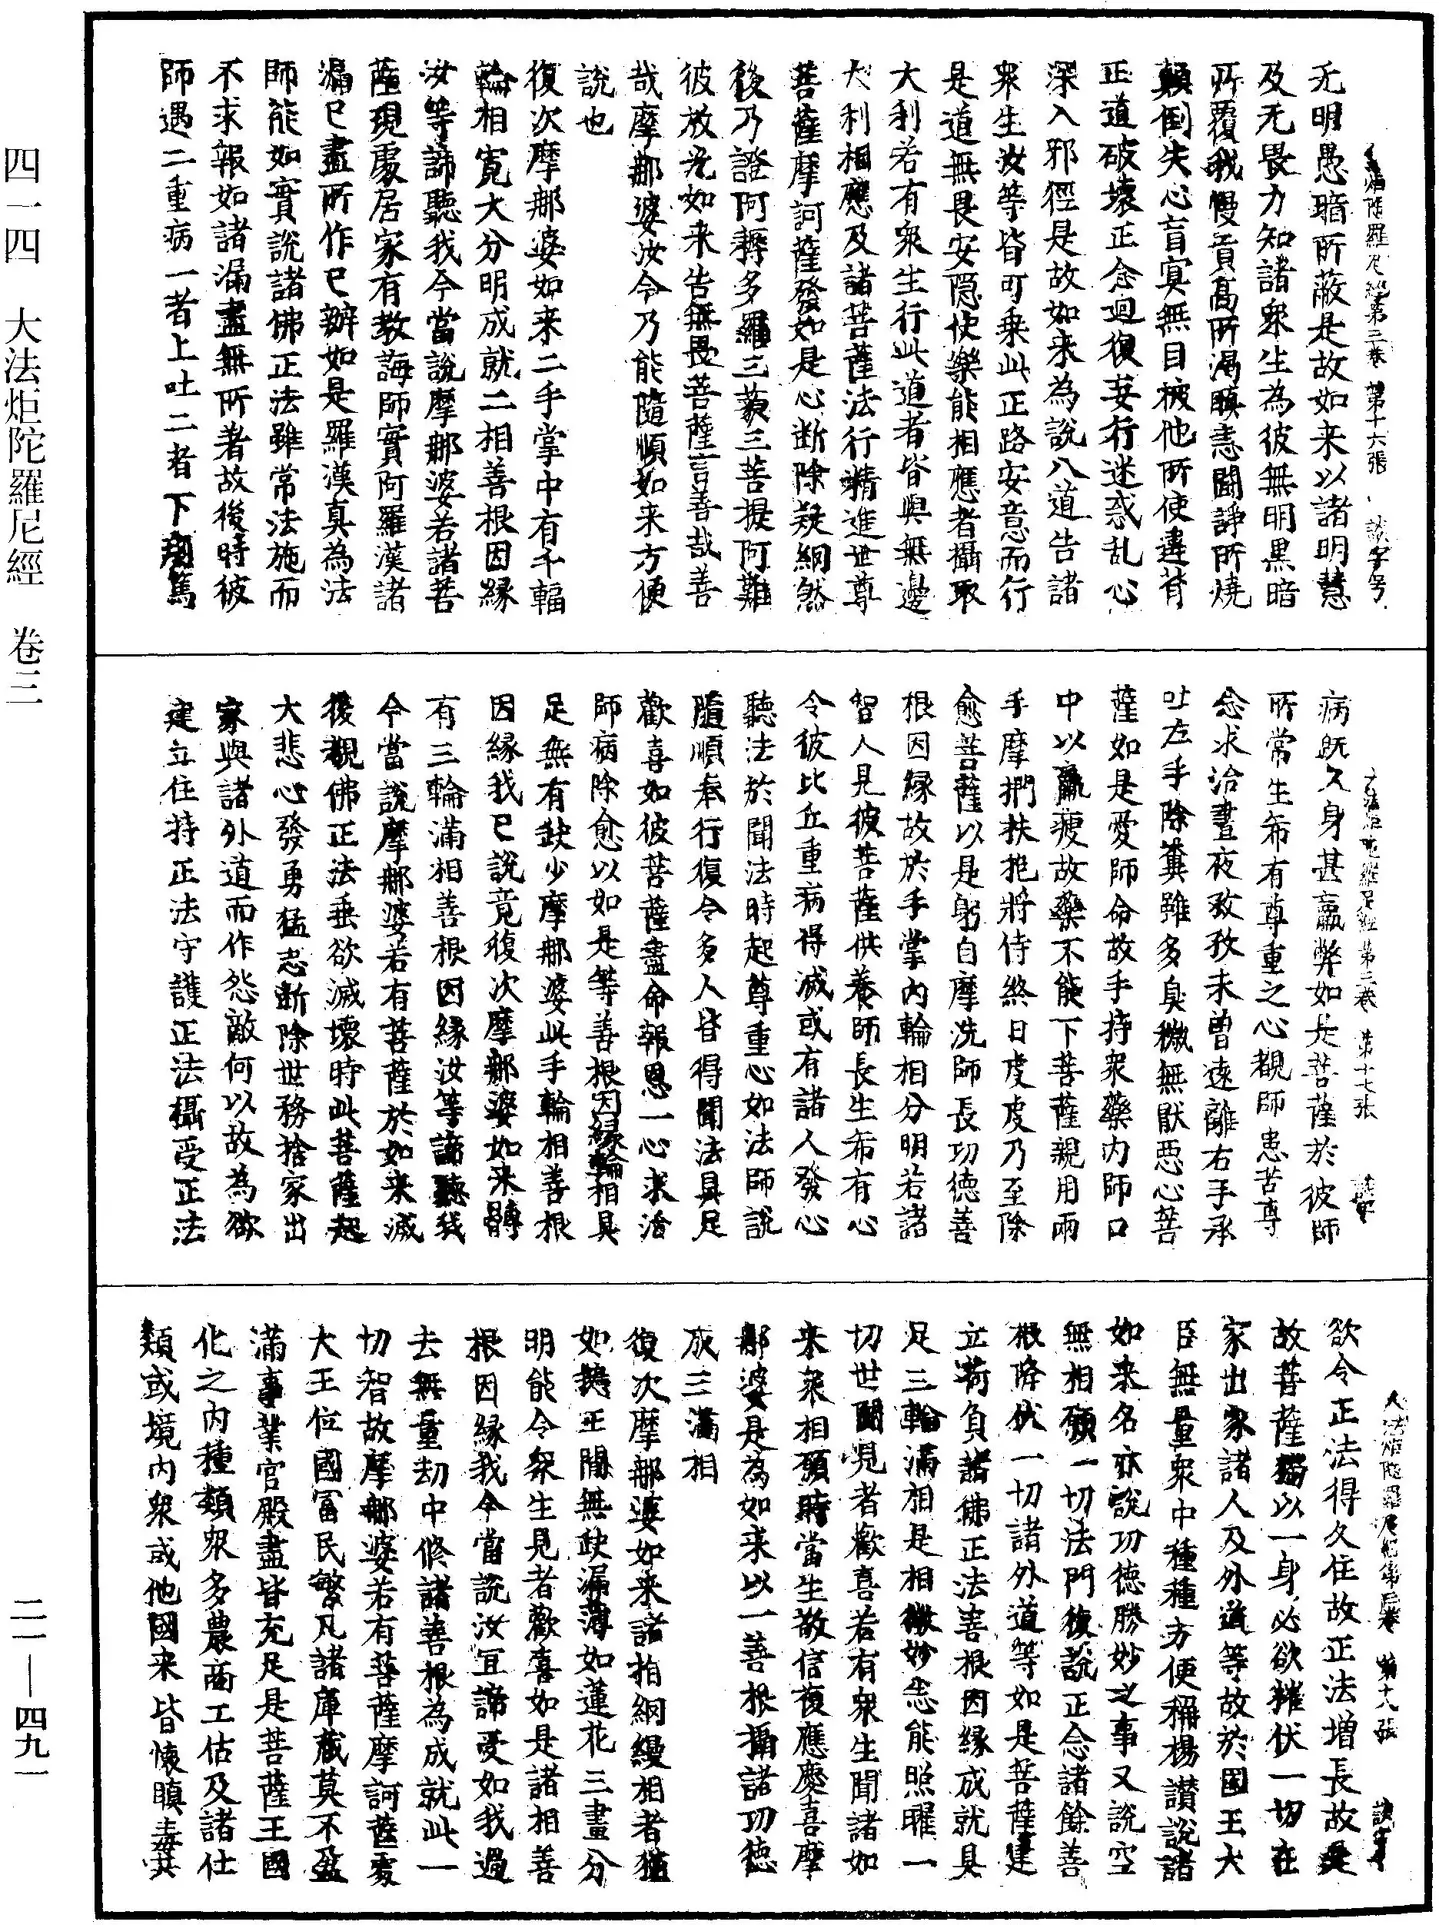 大法炬陀羅尼經第三卷 第十六張 談字号
无明愚暗所蔽是故如来以諸明慧
及无畏力知諸衆生為彼無明黒暗
所覆我慢貢高所渴瞋恚鬪諍所燒
顛倒失心盲冥無目被他所使違背
正道破壞正念迴復妄行迷惑乱心
深入邪徑是故如来為說八道告諸
衆生汝等皆可乗此正路安意而行
是道無畏安隠使樂能相應者攝取
大利若有衆生行此道者皆與無邊
大利相應及諸菩薩法行精進世尊
菩薩摩訶薩發如是心断除疑網然
後乃證阿耨多羅三藐三菩提阿難
彼放光如来告無畏菩薩言善哉善
哉摩那婆汝今乃能隨順如来方便
說也
復次摩那婆如来二手掌中有千輻
輪相寛大分明成就二相善根因緣
汝等諦聽我今當說摩那婆若諸菩
薩現處居家有教誨師實阿羅漢諸
漏已盡所作已辦如是羅漢真為法
師能如實說諸佛正法雖常法施而
不求報如諸漏盡無所著故後時彼
師遇二重病一者上吐二者下痢篤
大法炬陀羅尼經第三卷 第十七張 談字
病既久身甚羸弊如是菩薩於彼師
所常生希有尊重之心覩師患苦尊
念求治晝夜孜孜未曽遠離右手承
吐左手除糞雖多臭穢無猒惡心菩
薩如是愛師命故手持衆藥内師口
中以羸瘦故藥不能下菩薩親用兩
手摩捫扶抱將侍終日虔虔乃至除
愈菩薩以是躬自摩洗師長功德善
根因緣故於手掌内輪相分明若諸
智人見彼菩薩供養師長生希有心
令彼比丘重病得減或有諸人發心
聽法於聞法時起尊重心如法師說
隨順奉行復令多人皆得聞法具足
歡喜如彼菩薩盡命報恩一心求治
師病除愈以如是等善根因緣輪相具
足無有缺少摩那婆此手輪相善根
因緣我已說竟復次摩那婆如来髆
有三輪滿相善根因緣汝等諦聽我
今當說摩那婆若有菩薩於如来滅
後觀佛正法垂欲滅壞時此菩薩起
大悲心發勇猛志断除世務捨家出
家與諸外道而作怨敵何以故為欲
建立住持正法守護正法攝受正法
大法炬陀羅尼經第三卷 第十八張 談字号
欲令正法得久住故正法增長故是
故菩薩獨以一身必欲摧伏一切在
家出家諸人及外道等故於國王大
臣無量衆中種種方便稱揚讃說諸
如来名亦說功德勝妙之事又說空
無相願一切法門復說正念諸餘善
根降伏一切諸外道等如是菩薩建
立荷負諸佛正法善根因緣成就具
足三輪滿相是相微妙悉能照曜一
切世間見者歡喜若有衆生聞諸如
来衆相願時當生故信復應慶喜摩
那婆是為如来以一善根攝諸功德
成三滿相
復次摩那婆如来諸指網縵相者猶
如鵝王間無缺漏薄如蓮花三畫分
明能令衆生見者歡喜如是諸相善
根因緣我今當說汝宜諦受如我過
去無量劫中修諸善根為成就此一
切智故摩那婆若有菩薩摩訶薩處
大王位國富民繁凡諸庫蔵莫不盈
滿事業官殿盡皆充足是菩薩王國
化之内種類衆多農商工估及諸仕
類或境内衆或他國来皆懐瞋毒其
四一四 大法炬陀羅尼經 卷三
二一—四九一